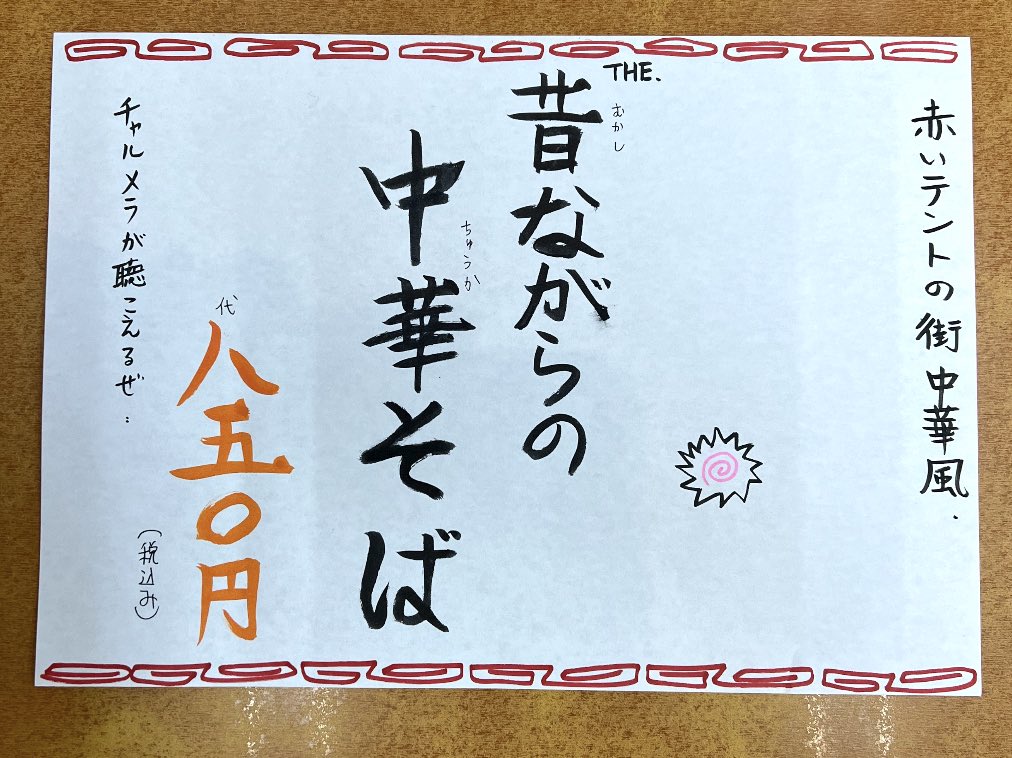 赤いテントの街 中華風.
THE.
昔ながらの
むかし
中華そば
ちゅうか
代
八五〇円
(税込み)
チャルメラが聴こえるぜ..